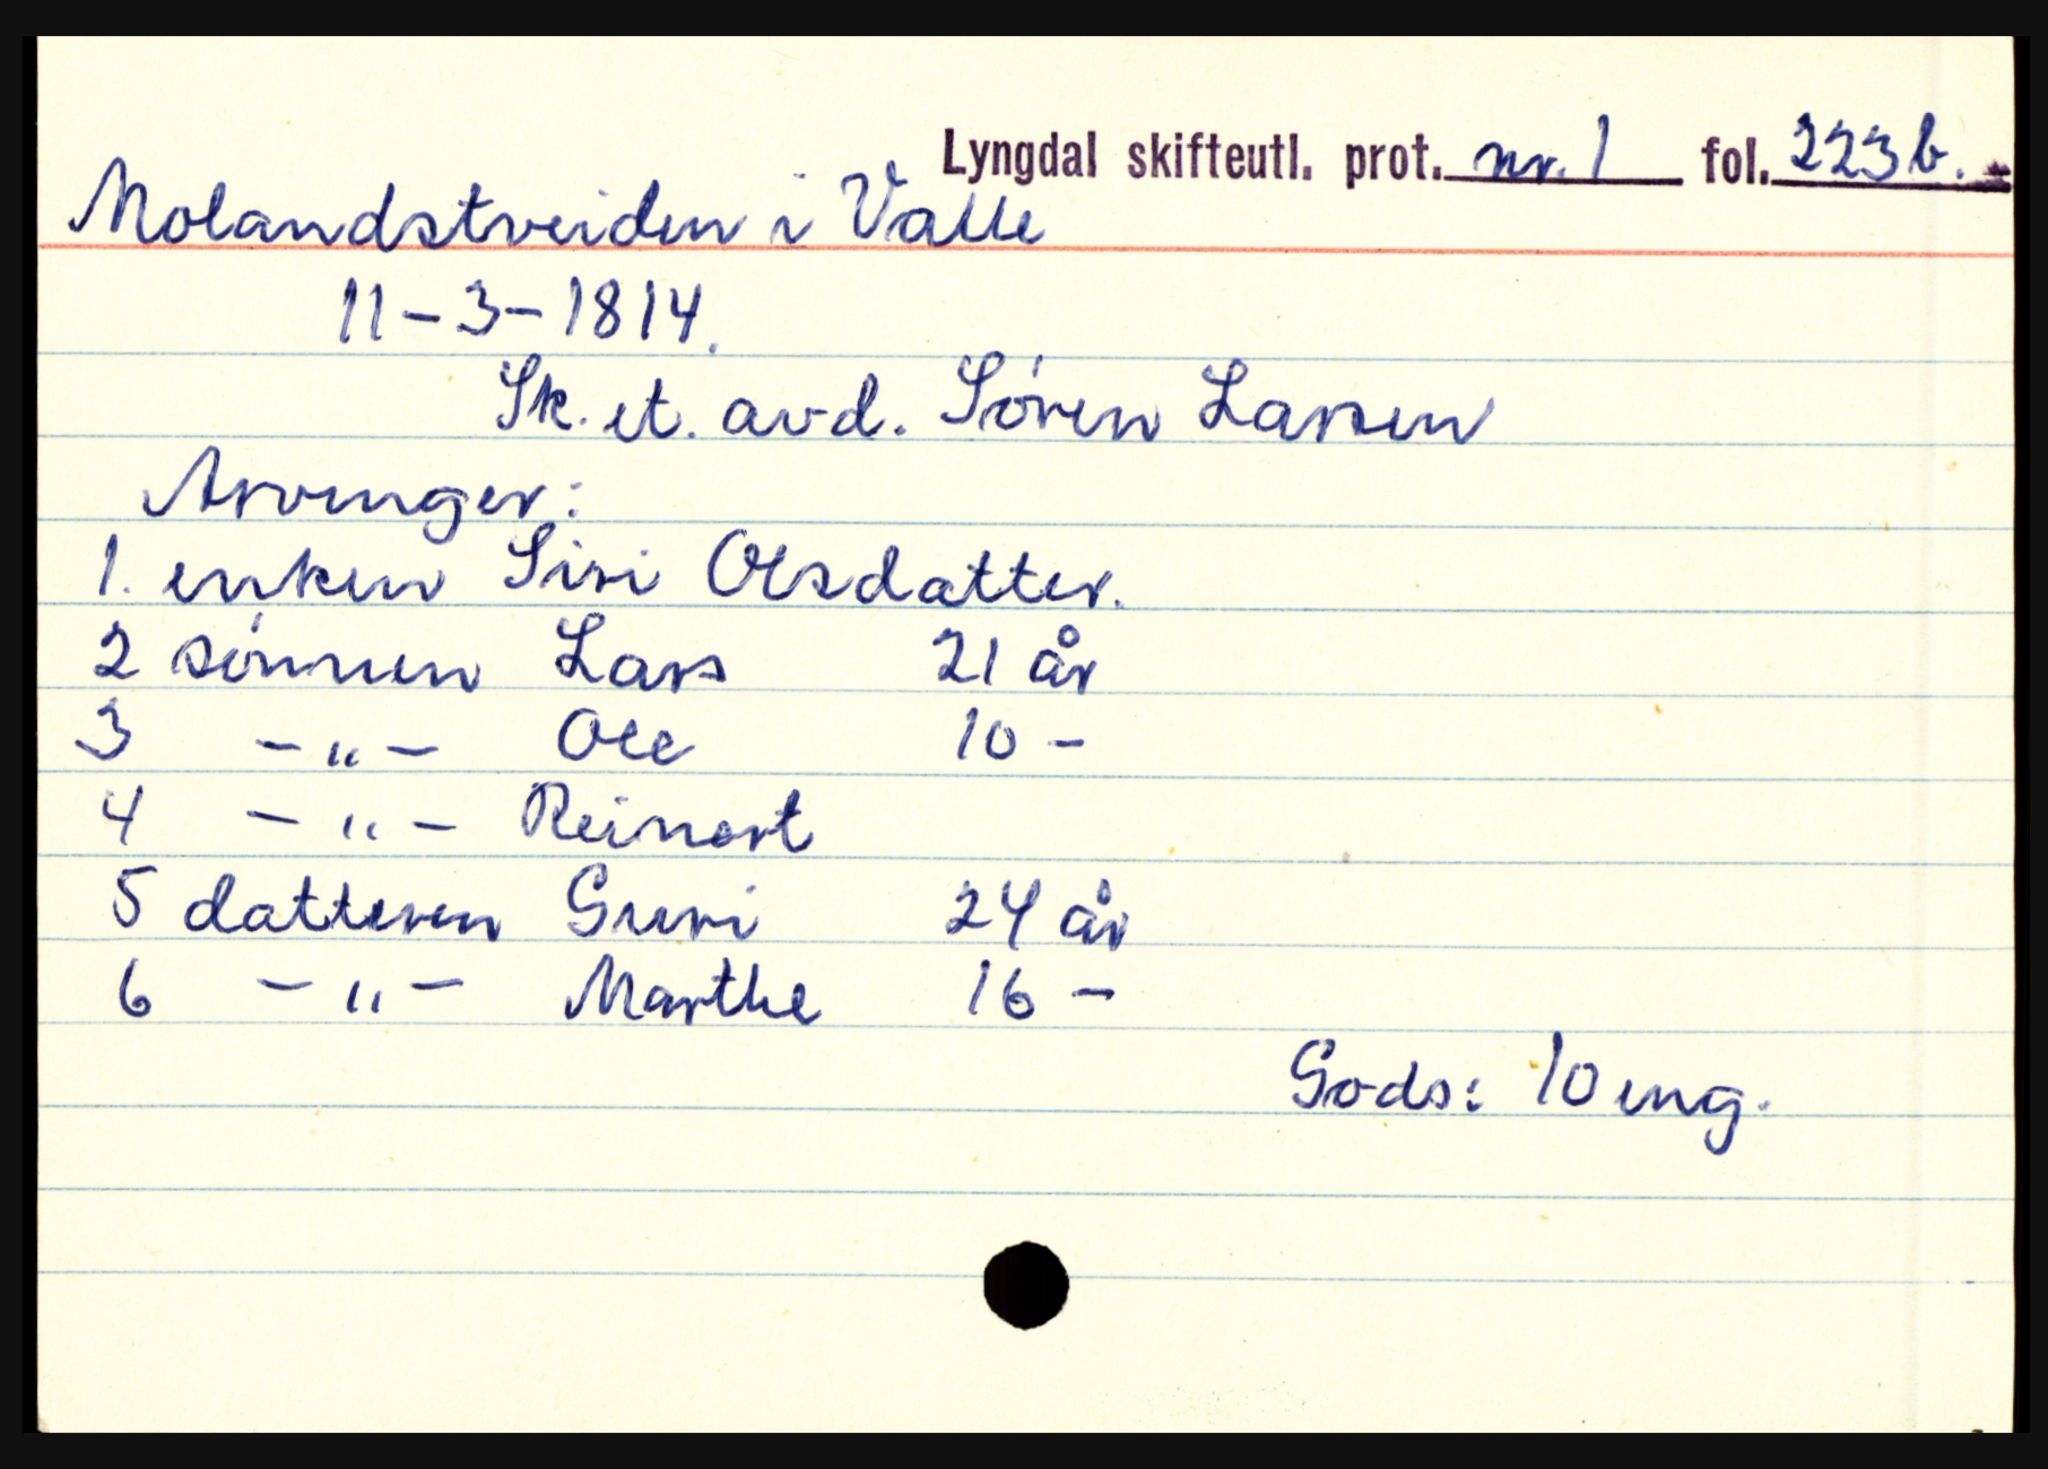 Lyngdal skifteutl. prot. nr. 1 fol. 223b.
Molandstveiden i Valle
11-3-1814.
Sk. et. avd. Søren Larsen
Arvinger:
1. enken Siri Olsdatter.
2 sønnen Lars 21 år
3 -"- Ole 10 -
4 -"- Reinert
5 datteren Guri 24 år
6 -"- Marthe 16 -
Gods: 10 eng.